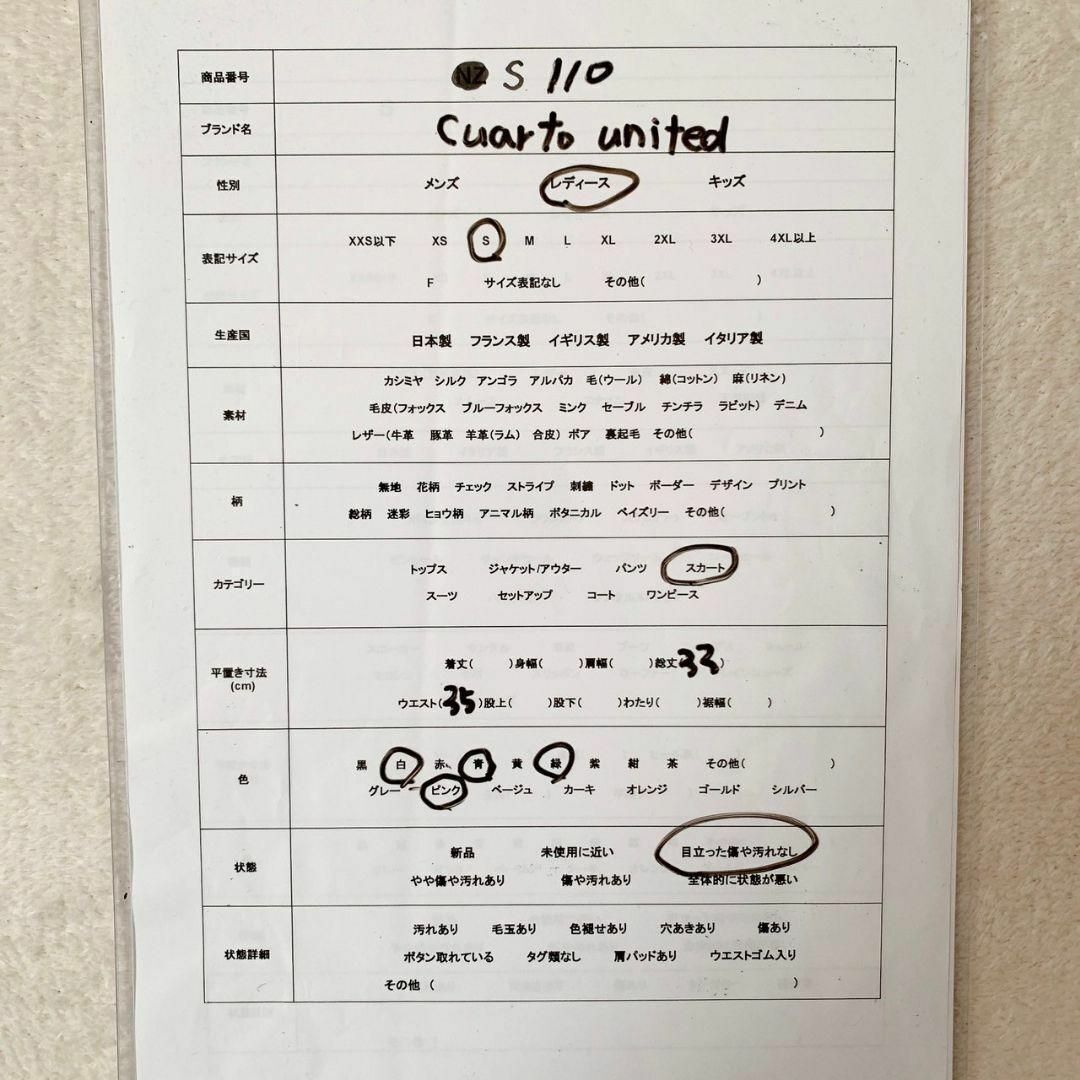 商品番号 NZ S 110
ブランド名 Cuarto united
性別 メンズ レディース キッズ
XXS以下 XS S M L XL 2XL 3XL 4XL以上
表記サイズ
F サイズ表記なし その他( )
生産国 日本製 フランス製 イギリス製 アメリカ製 イタリア製
カシミヤ シルク アンゴラ アルパカ 毛(ウール) 綿(コットン) 麻(リネン)
素材 毛皮(フォックス ブルーフォックス ミンク セーブル チンチラ ラビット) デニム
レザー(牛革 豚革 羊革(ラム) 合皮) ボア 裏起毛 その他( )
無地 花柄 チェック ストライプ 刺繍 ドット ボーダー デザイン プリント
柄
総柄 迷彩 ヒョウ柄 アニマル柄 ボタニカル ペイズリー その他( )
トップス ジャケット/アウター パンツ スカート
カテゴリー
スーツ セットアップ コート ワンピース
着丈( )身幅( )肩幅( )総丈(33)
平置き寸法
(cm)
ウエスト(35)股上( )股下( )わたり( )裾幅( )
黒 白 赤、 青 黄 緑 紫 紺 茶 その他( )
色
グレー ピンク ベージュ カーキ オレンジ ゴールド シルバー
新品 未使用に近い 目立った傷や汚れなし
状態
やや傷や汚れあり 傷や汚れあり 全体的に状態が悪い
汚れあり 毛玉あり 色褪せあり 穴あきあり 傷あり
状態詳細 ボタン取れている タグ類なし 肩パッドあり ウエストゴム入り
その他 ( )